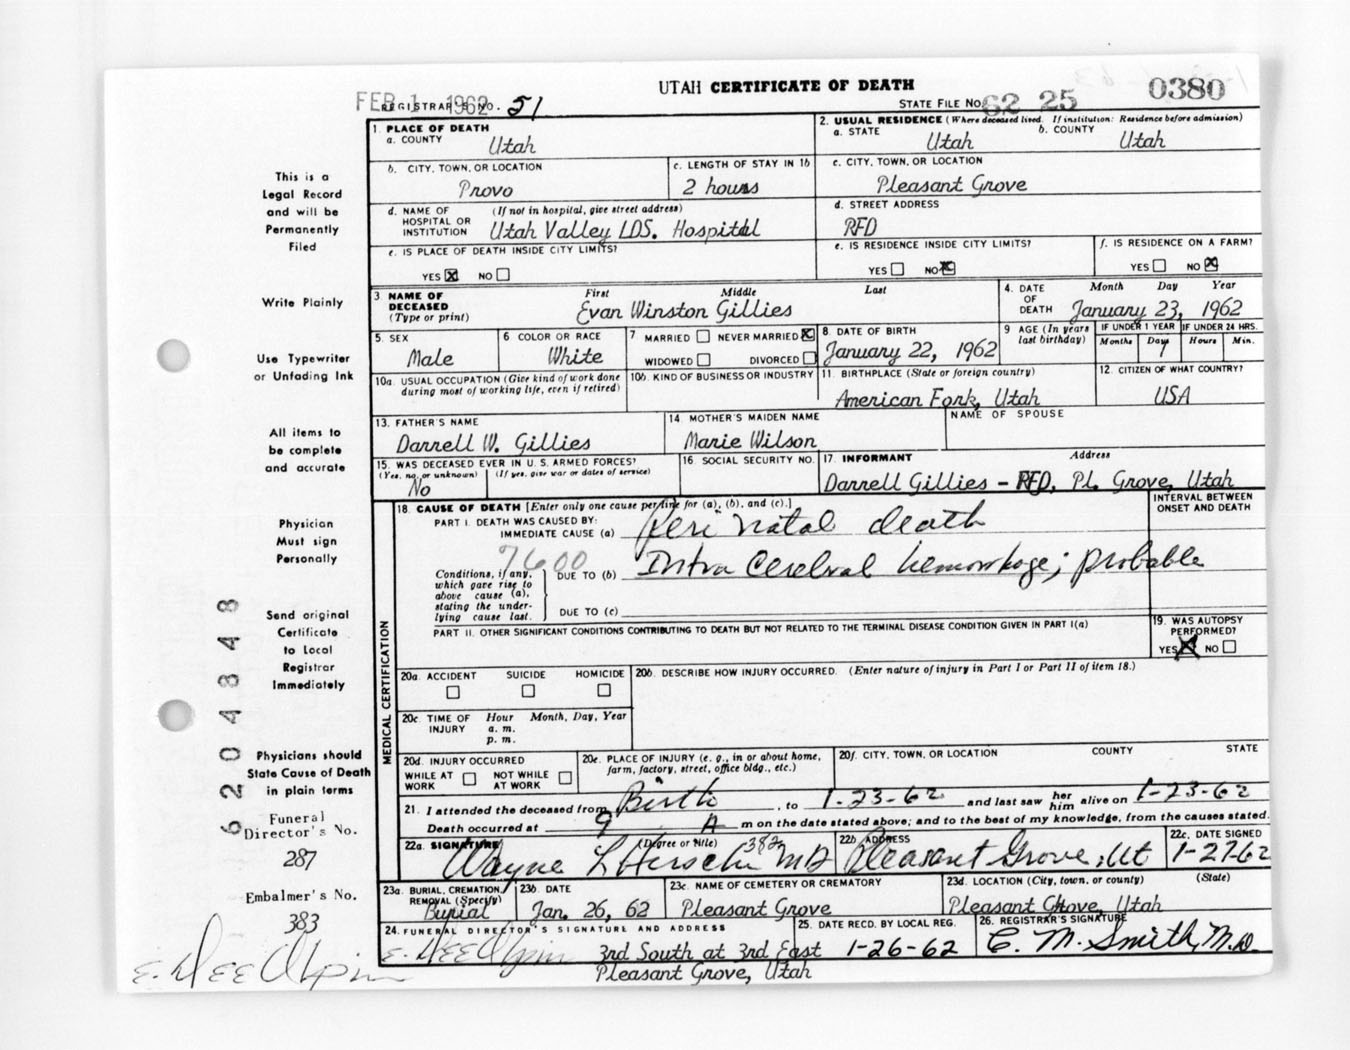 UTAH CERTIFICATE OF DEATH
FEB 1 1962
REGISTRAR'S NO. 51
STATE FILE NO. 62 25 0380
1. PLACE OF DEATH
a. COUNTY Utah
2. USUAL RESIDENCE (Where deceased lived. If institution: Residence before admission)
a. STATE Utah b. COUNTY Utah
b. CITY, TOWN, OR LOCATION Provo
c. LENGTH OF STAY IN 1b 2 hours
c. CITY, TOWN, OR LOCATION Pleasant Grove
d. NAME OF HOSPITAL OR INSTITUTION (If not in hospital, give street address) Utah Valley LDS. Hospital
d. STREET ADDRESS RFD
e. IS PLACE OF DEATH INSIDE CITY LIMITS?
YES NO
e. IS RESIDENCE INSIDE CITY LIMITS?
YES NO
f. IS RESIDENCE ON A FARM?
YES NO
3 NAME OF DECEASED (Type or print)
First Middle Last
Evan Winston Gillies
4. DATE OF DEATH Month Day Year
January 23, 1962
5. SEX Male
6 COLOR OR RACE White
7 MARRIED NEVER MARRIED
WIDOWED DIVORCED
8 DATE OF BIRTH January 22, 1962
9 AGE (In years last birthday)
IF UNDER 1 YEAR Months Days 1
IF UNDER 24 HRS. Hours Min.
10a. USUAL OCCUPATION (Give kind of work done during most of working life, even if retired)
10b. KIND OF BUSINESS OR INDUSTRY
11. BIRTHPLACE (State or foreign country)
American Fork, Utah
12. CITIZEN OF WHAT COUNTRY?
USA
13. FATHER'S NAME
Darrell W. Gillies
14 MOTHER'S MAIDEN NAME
Marie Wilson
NAME OF SPOUSE
15. WAS DECEASED EVER IN U.S. ARMED FORCES?
(Yes, no, or unknown) (If yes, give war or dates of service)
No
16. SOCIAL SECURITY NO.
17. INFORMANT Address
Darrell Gillies - RFD, Pl. Grove, Utah
MEDICAL CERTIFICATION
18. CAUSE OF DEATH [Enter only one cause per line for (a), (b), and (c).]
INTERVAL BETWEEN ONSET AND DEATH
PART I. DEATH WAS CAUSED BY:
IMMEDIATE CAUSE (a) Peri natal death
7600
Conditions, if any, which gave rise to above cause (a), stating the underlying cause last.
DUE TO (b) Intra Cerebral hemorrhage; probable
DUE TO (c)
PART II. OTHER SIGNIFICANT CONDITIONS CONTRIBUTING TO DEATH BUT NOT RELATED TO THE TERMINAL DISEASE CONDITION GIVEN IN PART I(a)
19. WAS AUTOPSY PERFORMED?
YES NO
20a. ACCIDENT SUICIDE HOMICIDE
20b. DESCRIBE HOW INJURY OCCURRED. (Enter nature of injury in Part I or Part II of item 18.)
20c. TIME OF INJURY Hour Month, Day, Year
a. m.
p. m.
20d. INJURY OCCURRED
WHILE AT WORK NOT WHILE AT WORK
20e. PLACE OF INJURY (e. g., in or about home, farm, factory, street, office bldg., etc.)
20f. CITY, TOWN, OR LOCATION COUNTY STATE
21. I attended the deceased from Birth, to 1-23-62 and last saw her him alive on 1-23-62
Death occurred at 9 A m on the date stated above; and to the best of my knowledge, from the causes stated.
22a. SIGNATURE (Degree or title)
Wayne L MD 382
22b. ADDRESS
Pleasant Grove, Ut
22c. DATE SIGNED
1-27-62
23a. BURIAL, CREMATION, REMOVAL (Specify)
Burial
23b. DATE
Jan. 26, 62
23c. NAME OF CEMETERY OR CREMATORY
Pleasant Grove
23d. LOCATION (City, town, or county) (State)
Pleasant Grove, Utah
24. FUNERAL DIRECTOR'S SIGNATURE AND ADDRESS
3rd South at 3rd East
Pleasant Grove, Utah
25. DATE RECD. BY LOCAL REG.
1-26-62
26. REGISTRAR'S SIGNATURE
C. M. Smith, M.D.
This is a
Legal Record
and will be
Permanently
Filed
Write Plainly
Use Typewriter
or Unfading Ink
All items to
be complete
and accurate
Physician
Must sign
Personally
Send original
Certificate
to Local
Registrar
Immediately
Physicians should
State Cause of Death
in plain terms
Funeral
Director's No.
287
Embalmer's No.
383
62204348